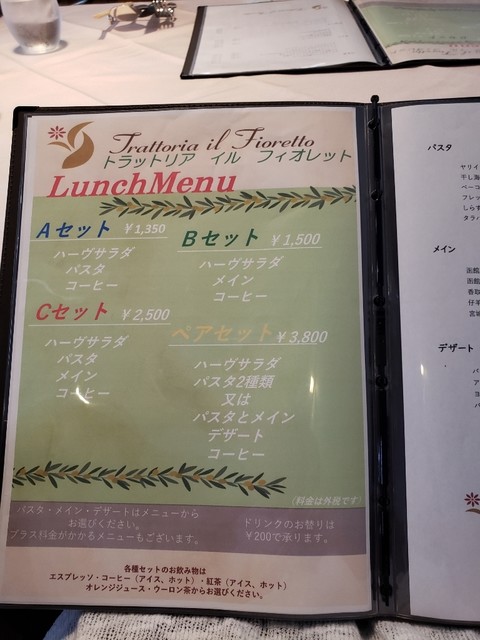 Trattoria il Fioretto
トラットリア イル フィオレット
LunchMenu
Aセット ¥1,350
ハーヴサラダ
パスタ
コーヒー
Bセット ¥1,500
ハーヴサラダ
メイン
コーヒー
Cセット ¥2,500
ハーヴサラダ
パスタ
メイン
コーヒー
ペアセット ¥3,800
ハーヴサラダ
パスタ2種類
又は
パスタとメイン
デザート
コーヒー
(料金は外税です)
パスタ・メイン・デザートはメニューから
お選びください。
プラス料金がかかるメニューもございます。
ドリンクのお替りは
¥200で承ります。
各種セットのお飲み物は
エスプレッソ・コーヒー(アイス、ホット)・紅茶(アイス、ホット)
オレンジジュース・ウーロン茶からお選びください。
パスタ
ヤリイ
干し海
ベーコ
フレッ
しらす
タラバ
メイン
函館
函館
香取
仔羊
宮城
デザート